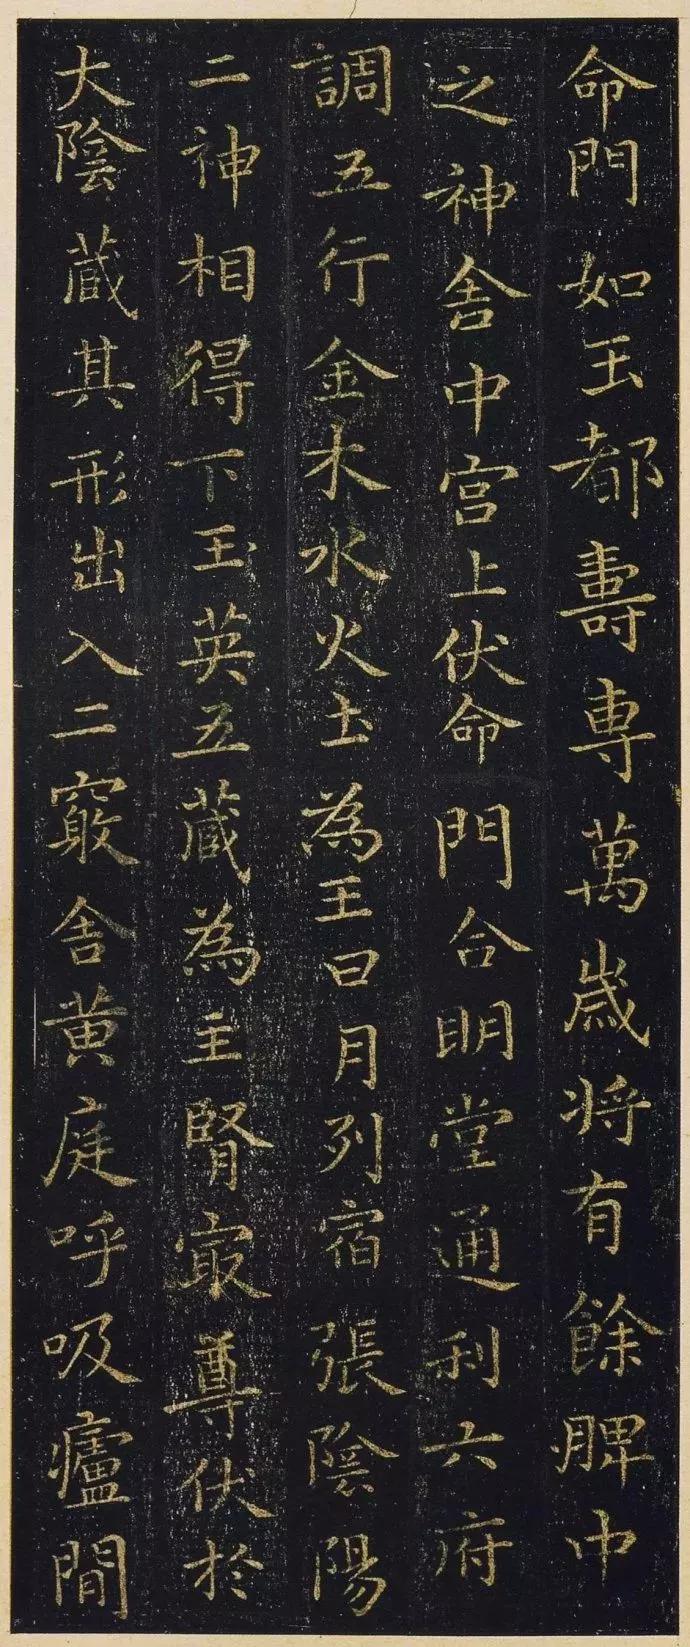 命門如玉都壽專萬歲将有餘脾中
之神舍中宫上伏命門合明堂通利六府
調五行金木水火土為王日月列宿張陰陽
二神相得下玉英五蔵為主腎冣尊伏於
大陰蔵其形出入二竅舍黄庭呼吸廬間